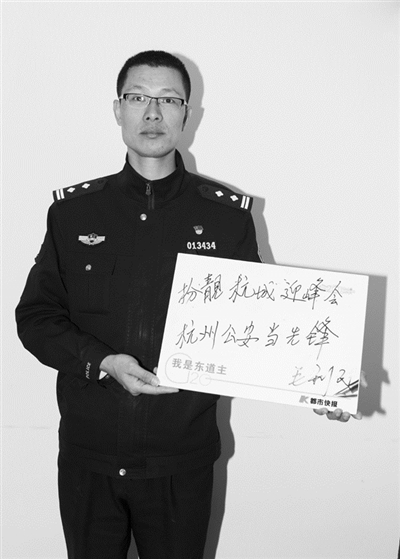 013434
扮靓杭城迎峰会
杭州公安当先锋
我是东道主
G20
都市快报